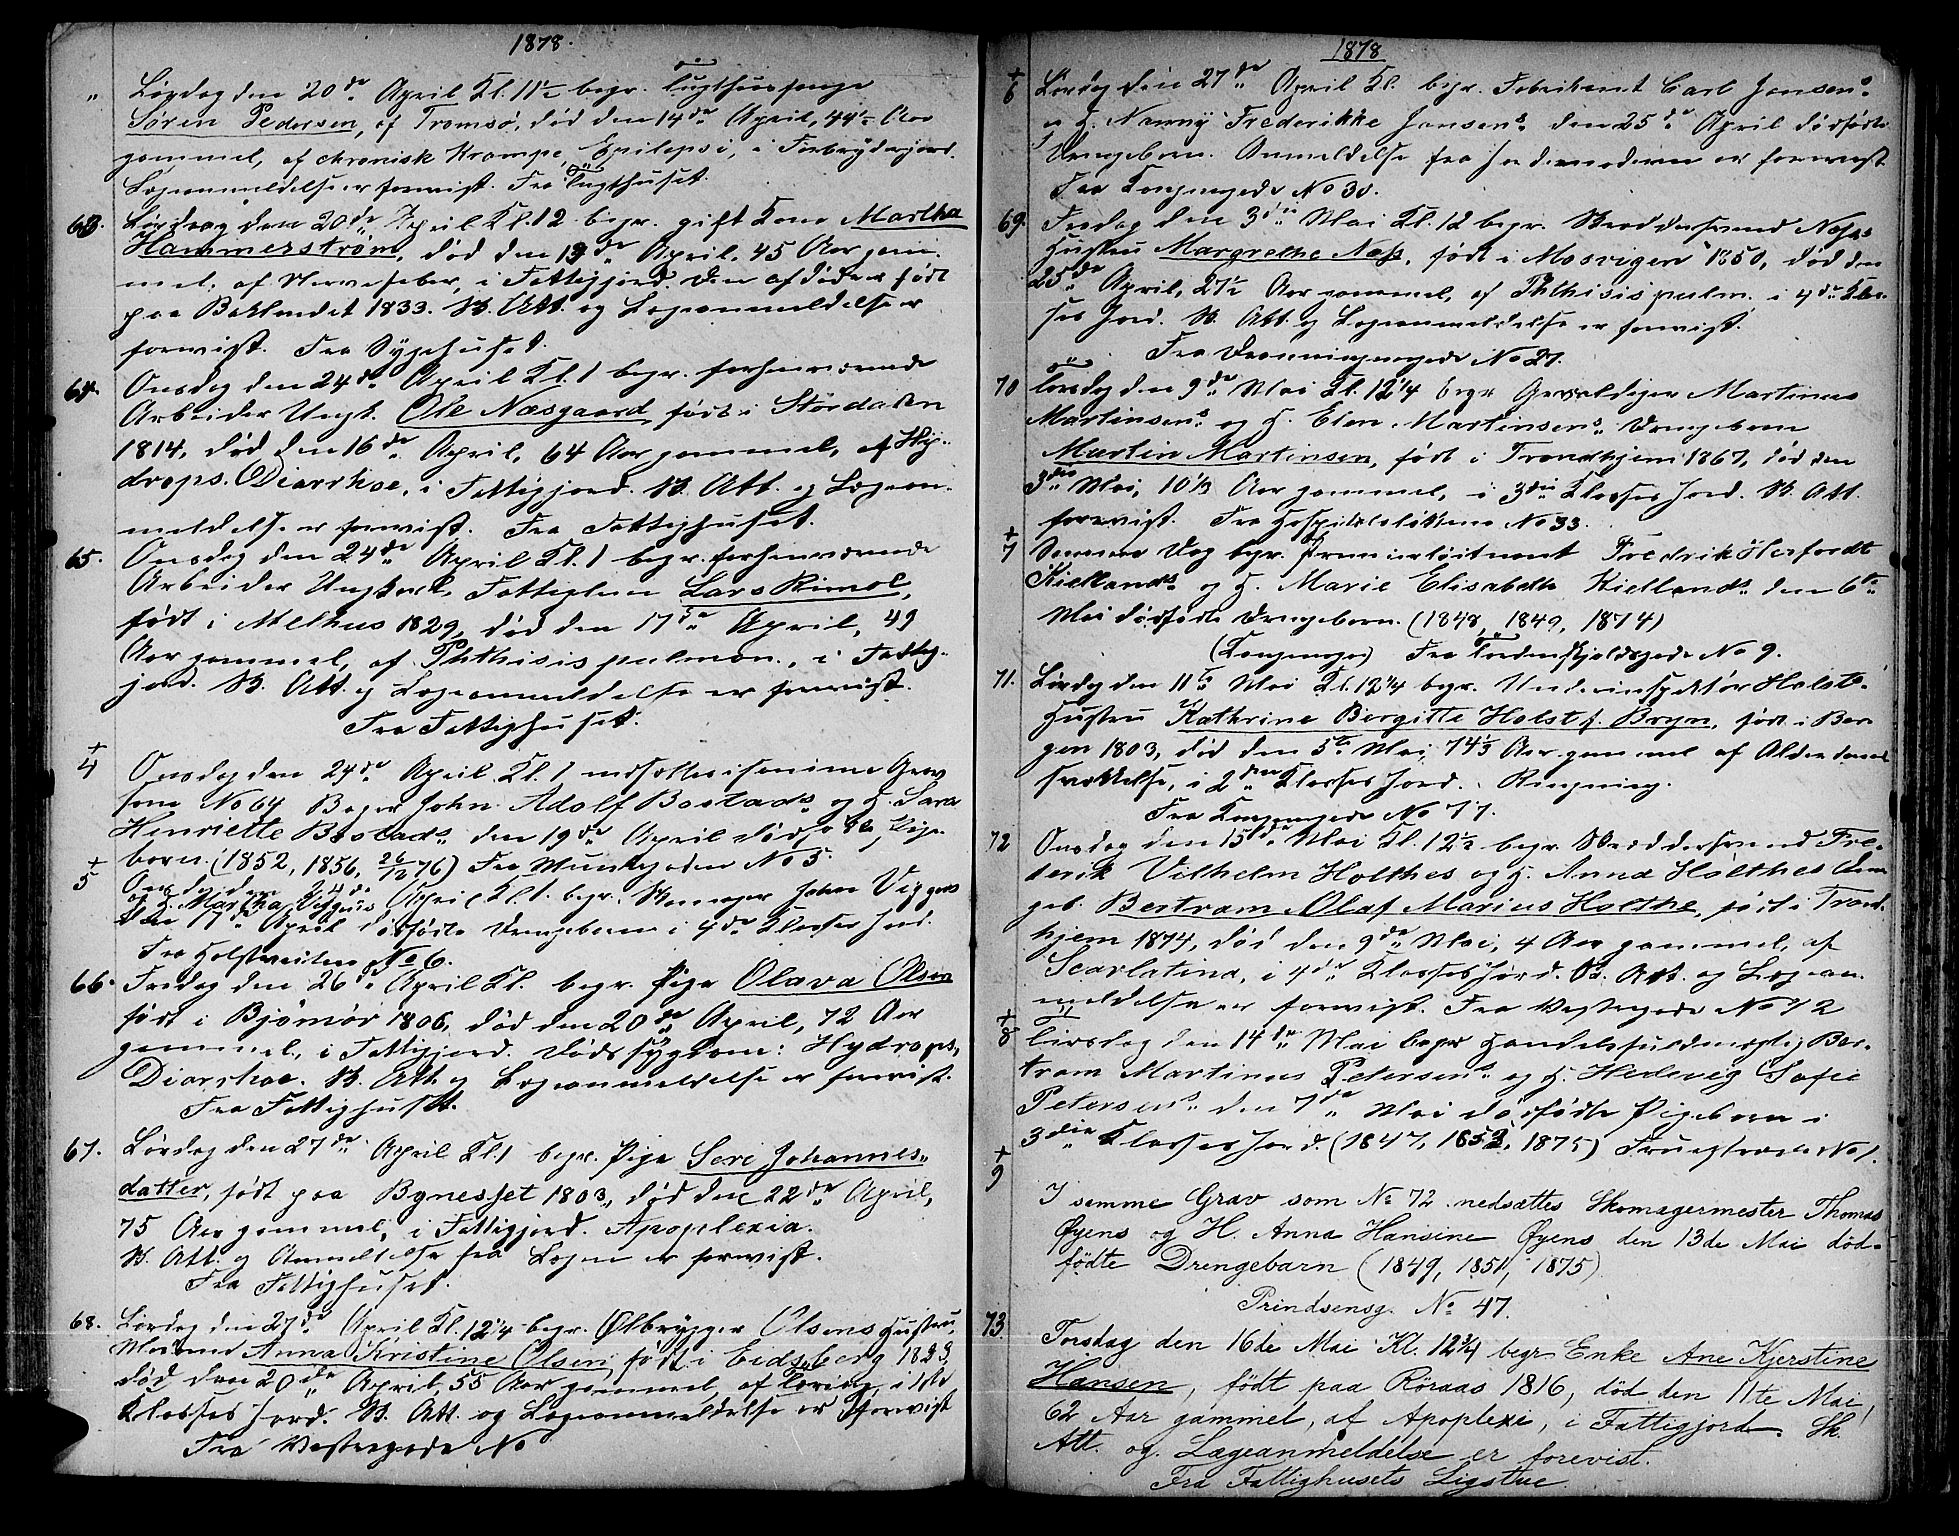 1878.
" Lørdag den 20de April Kl. 11½ begr. Tugthusfange
Søren Pedersen, af Tromsø, død den 14de April, 44½ Aar
gammel, af chronisk Krampe, Epilepsi, i Forbryderjord.
Lægeanmeldelse er forevist. Fra Tugthuset.
63. Lørdag den 20de April Kl. 12 begr. gift Kone Martha
Hammerstrøm, død den 13de April, 45 Aar gam-
mel, af Nervefeber, i Fattigjord. Den afdøde er født
paa Baklandet 1833. Sk. Att. og Lægeanmeldelse er
forevist. Fra Sygehuset.
64. Onsdag den 24de April Kl. 1 begr. forhenværende
Arbeider Ungk. Ole Næsgaard, født i Størdalen
1814, død den 16de April, 64 Aar gammel, af Hy-
drops. Diarrhoe, i Fattigjord. Sk. Att. og Lægean-
meldelse er forevist. Fra Fattighuset.
65. Onsdag den 24de April Kl. 1 begr. forhenværende
Arbeider Ungkarl, Fattiglem Lars Rimol,
født i Melhus 1829, død den 17de April, 49
Aar gammel, af Phthisis pulmon., i Fattig-
jord. Sk. Att. og Lægeanmeldelse er forevist.
Fra Fattighuset.
+ 4 Onsdag den 24de April Kl. 1 nedsattes i samme Grav
som No 64 Bager John Adolf Bostads og H. Sara
Henriette Bostads den 19de April dødfødte Pige-
barn. (1852, 1856, 26/12 76) Fra Munkegaden No 5.
+ 5 Onsdag den 24de April Kl. 1 begr. John Viggens
og H. Martha Viggens
den 17de April dødfødte Drengebarn i 4de Klasses Jord.
Fra Holstveiten No 6.
66. Fredag den 26de April Kl. begr. Pige Olava Olsen
født i Bjørnør 1806, død den 20de April, 72 Aar
gammel, i Fattigjord. Dødssygdom: Hydrops,
Diarrhoe. Sk. Att. og Lægeanmeldelse er forevist.
Fra Fattighuset.
67. Lørdag den 27de April Kl. 1 begr. Pige Seri Johannes-
datter, født paa Bynesset 1803, død den 22de April,
75 Aar gammel, i Fattigjord. Apoplexia.
Sk. Att. og Anmeldelse fra Lægen er forevist.
Fra Fattighuset.
68. Lørdag den 27de April Kl. 12¼ begr. Ølbrygger Olsens Hustru,
Anna Kristine Olsen, født i Eidsberg 1823,
død den 20de April, 55 Aar gammel, af i 1ste
Klasses Jord. Sk. Att. og Lægeanmeldelse er forevist
Fra Vestregade No
1878
+ 6 Lørdag den 27de April Kl. begr. Fabrikant Carl Jensens
og H. Nanny Frederikke Jensens den 25de April dødfødte
Drengebarn. Anmeldelse fra Jordemoderen er forevist
Fra Kongensgade No 30.
69. Fredag den 3die Mai Kl. 12 begr. Skræddersvend Næss
Hustru Margrethe Næss, født i Mosvigen 1850, død den
25de April, 27½ Aar gammel, af Phthisis pulm. i 4de Klas-
ses Jord. Sk. Att. og Lægeanmeldelse er forevist.
Fra Dronningensgade No 27.
70 Torsdag den 9de Mai Kl. 12¼ begr Gevaldiger Martinus
Martinsens og H. Elen Martinsens Drengebarn
Martin Martinsen, født i Trondhjem 1867, død den
3die Mai, 10⅓ Aar gammel, i 3die Klasses Jord. Sk. Att.
forevist. Fra Hospitalsløkkens No 33.
+ 7 Samme Dag begr. Premierløitnant Fredrik Herfordt
Kiellands og H. Marie Elisabeth Kiellands den 6te
Mai dødfødte Drengebarn. (1848, 1849, 1874)
(Kongensge) Fra Tordenskjoldsgade No 9.
71. Lørdag den 11te Mai Kl. 12¼ begr. Underinspektør Holsts
Hustru Kathrine Bergitte Holst f. Bryn, født i Ber-
gen 1803, død den 5te Mai, 74⅓ Aar gammel af Alderdoms-
svækkelse, i 2den Klasses Jord. Ringning.
Fra Kongensgade No 77.
72 Onsdag den 15de Mai Kl. 12½ begr. Skræddersvend Fre-
derik Vilhelm Holthes og H. Anna Holthes Dren-
geb. Bertram Olaf Marius Holthe, født i Trond-
hjem 1874, død den 9de Mai, 4 Aar gammel, af
Scarlatina, i 4de Klasses Jord. Sk. Att. og Lægean-
meldelse er forevist. Fra Vestregade No 42
+ 8 Tirsdag den 14de Mai begr Handelsfuldmægtig Ber-
tram Martinus Petersens og H. Hedevig Sofie
Petersens den 7de Mai dødfødte Pigebarn i
3die Klasses Jord. (1847, 1852, 1875) Fruestræde No 1.
+ 9 I samme Grav som No 72 nedsættes Skomagermester Thomas
Øyens og H. Anna Hansine Øyens den 13de Mai død-
fødte Drengebarn (1849, 1851, 1875)
Prindsensg. No 47.
73 Torsdag den 16de Mai Kl. 12¾ begr Enke Ane Kjerstine
Hansen, født paa Röraas 1816, död den 11te Mai,
62 Aar gammel, af Apoplexi, i Fattigjord. Sk.
Att. og Lægeanmeldelse er forevist.
Fra Fattighusets Ligstue.